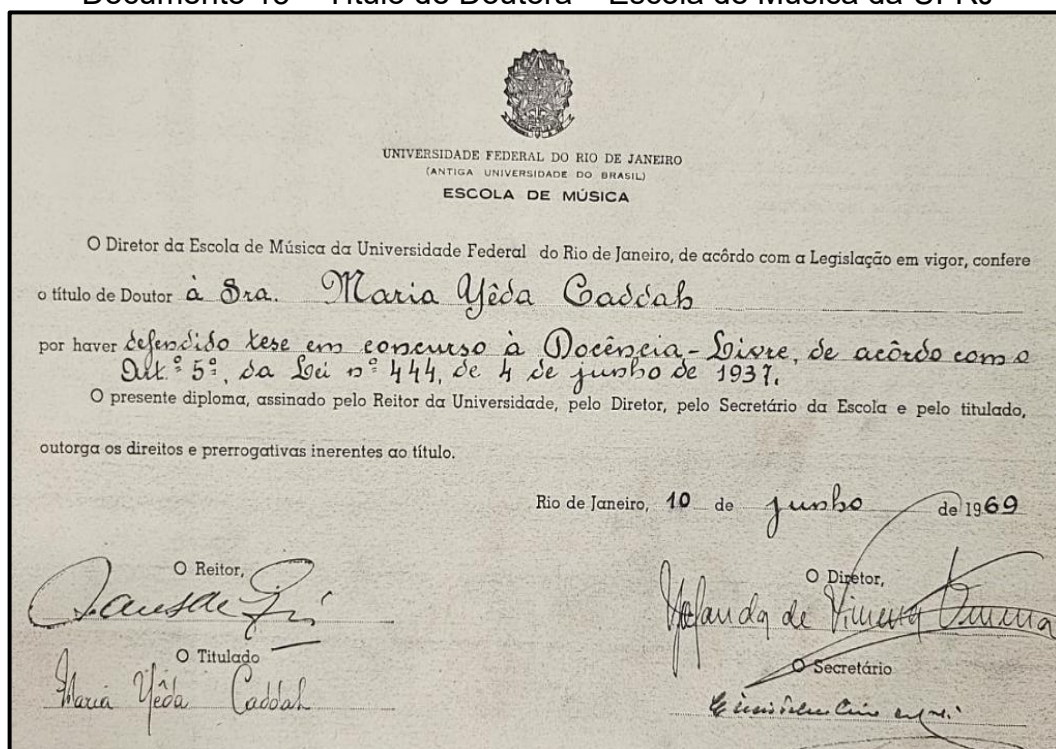 Documento 18 – Título de Doutora – Escola de Música da UFRJ
UNIVERSIDADE FEDERAL DO RIO DE JANEIRO
(ANTIGA UNIVERSIDADE DO BRASIL)
ESCOLA DE MÚSICA
O Diretor da Escola de Música da Universidade Federal do Rio de Janeiro, de acôrdo com a Legislação em vigor, confere
o título de Doutor à Sra. Maria Yêda Caddah
por haver defendido tese em concurso à Docência-Livre, de acôrdo com o
Art.º 5º, da Lei nº 444, de 4 de junho de 1937.
O presente diploma, assinado pelo Reitor da Universidade, pelo Diretor, pelo Secretário da Escola e pelo titulado,
outorga os direitos e prerrogativas inerentes ao título.
Rio de Janeiro, 10 de junho de 1969
O Reitor,
O Titulado
Maria Yêda Caddah
O Diretor,
Yolanda de
O Secretário